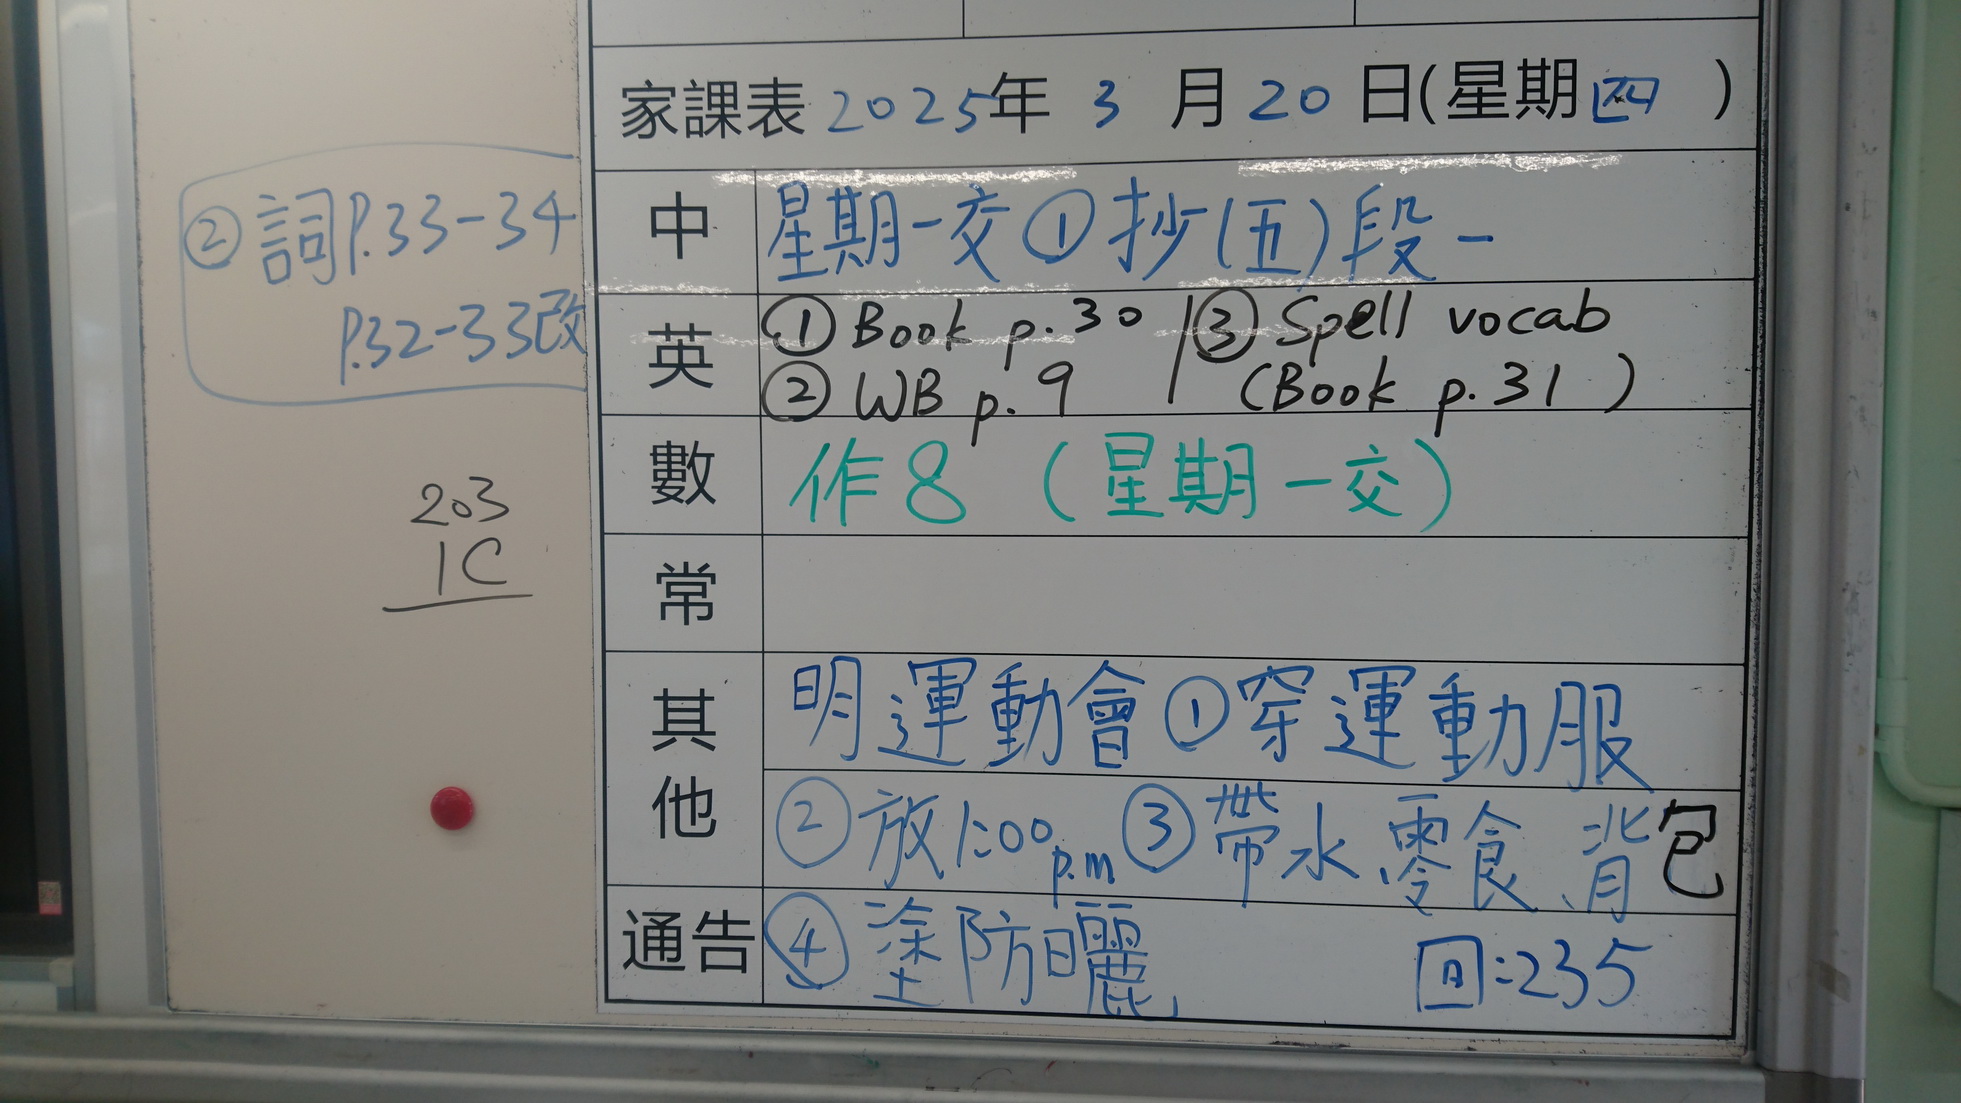 家課表 2025年 3 月 20 日(星期四 )
中 星期一交 ① 抄(五)段一
② 詞P.33-34
P.32-33改
英 ① Book p.30 ③ Spell vocab
② WB p.9 (Book p.31)
數 作8 (星期一交)
203
1C
常
其他 明運動會 ① 穿運動服
② 放1:00p.m ③ 帶水、零食、背包
通告 ④ 塗防曬 回:235